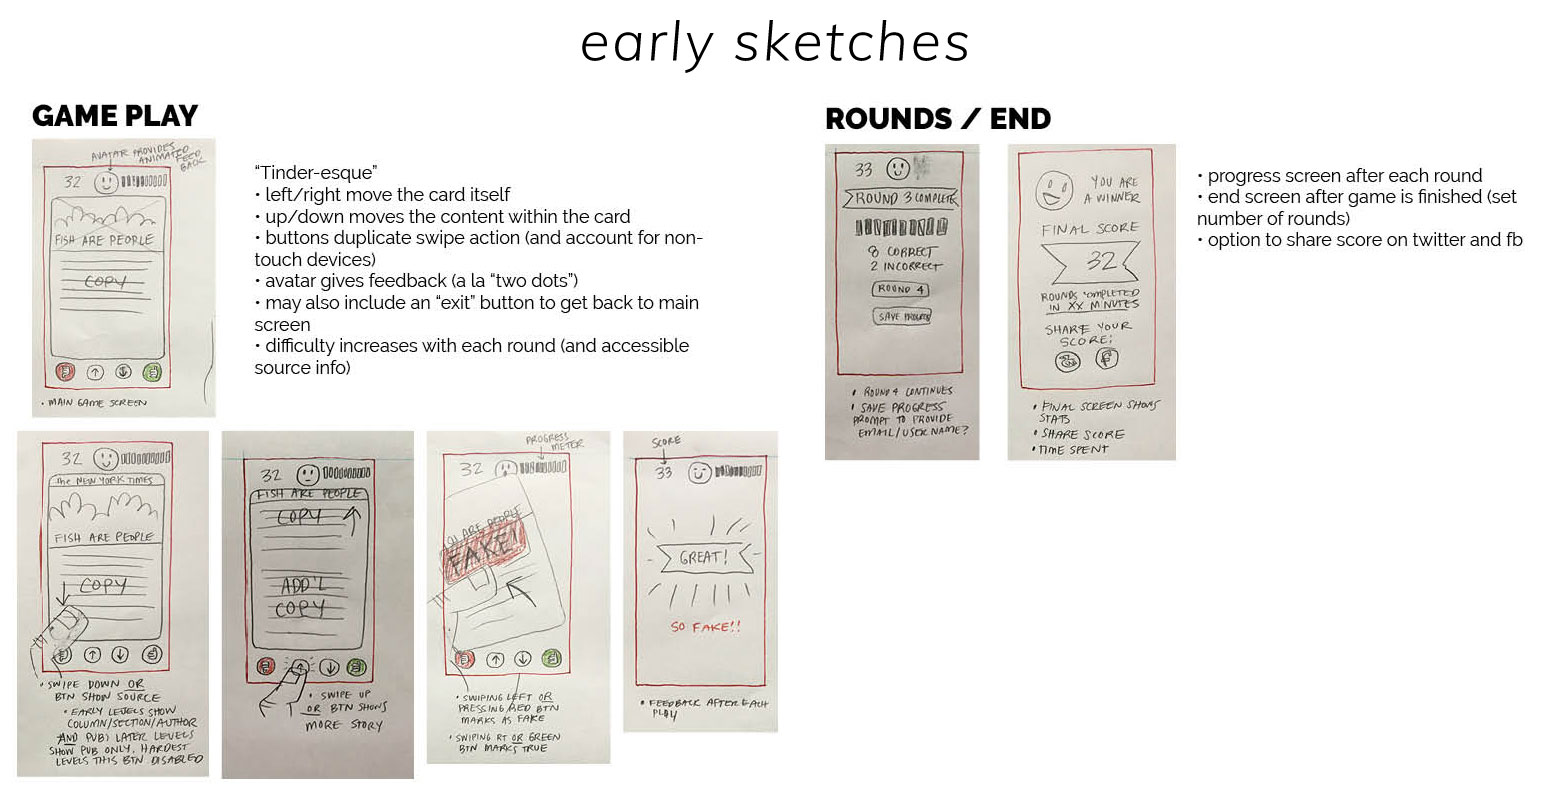 early sketches
GAME PLAY
AVATAR PROVIDES
ANIMATED FEED
BACK
32
FISH ARE PEOPLE
COPY
• MAIN GAME SCREEN
“Tinder-esque”
• left/right move the card itself
• up/down moves the content within the card
• buttons duplicate swipe action (and account for non-
touch devices)
• avatar gives feedback (a la “two dots”)
• may also include an “exit” button to get back to main
screen
• difficulty increases with each round (and accessible
source info)
32
The NEW YORK TIMES
FISH ARE PEOPLE
COPY
• SWIPE DOWN OR
BTN SHOW SOURCE
• EARLY LEVELS SHOW
COLUMN/SECTION/AUTHOR
AND PUB; LATER LEVELS
SHOW PUB ONLY, HARDEST
LEVELS THIS BTN DISABLED
32
FISH ARE PEOPLE
COPY
ADD'L
COPY
• SWIPE UP
OR BTN SHOWS
MORE STORY
PROGRESS
METER
32
ARE PEOPLE
FAKE!
• SWIPING LEFT OR
PRESSING RED BTN
MARKS AS FAKE
• SWIPING RT OR GREEN
BTN MARKS TRUE
SCORE
33
GREAT!
SO FAKE!!
• FEEDBACK AFTER EACH
PLAY
ROUNDS / END
33
ROUND 3 COMPLETE
8 CORRECT
2 INCORRECT
ROUND 4
SAVE PROGRESS
• ROUND 4 CONTINUES
• SAVE PROGRESS
PROMPT TO PROVIDE
EMAIL/USER NAME?
YOU ARE
A WINNER
FINAL SCORE
32
ROUNDS COMPLETED
IN XX MINUTES
SHARE YOUR
SCORE:
• FINAL SCREEN SHOWS
STATS
• SHARE SCORE
• TIME SPENT
• progress screen after each round
• end screen after game is finished (set
number of rounds)
• option to share score on twitter and fb